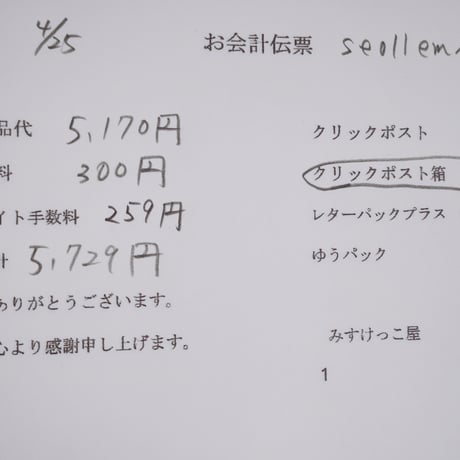 4/25 お会計伝票 seollem
品代 5,170円 クリックポスト
料 300円 クリックポスト箱
イト手数料 259円 レターパックプラス
計 5,729円 ゆうパック
ありがとうございます。
心より感謝申し上げます。 みすけっこ屋
1